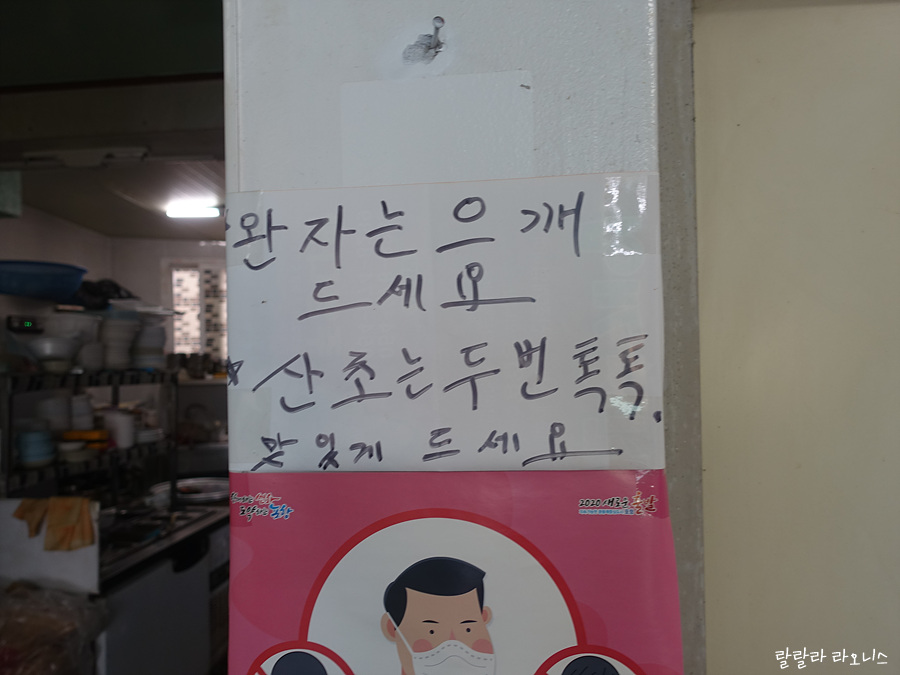 완자는 으깨
드세요
* 산초는 두번 톡톡.
맛있게 드세요
2020 새로운
랄랄라 라오니스